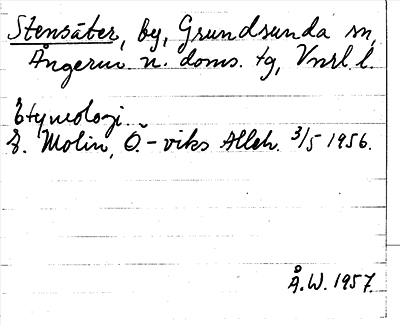 Stensäter, by, Grundsunda sn,
Ångerm. n. doms. tg, Vnrl l.
Etymologi.
E. Molin, Ö-viks Alleh. 3/5 1956.
Å.W. 1957.